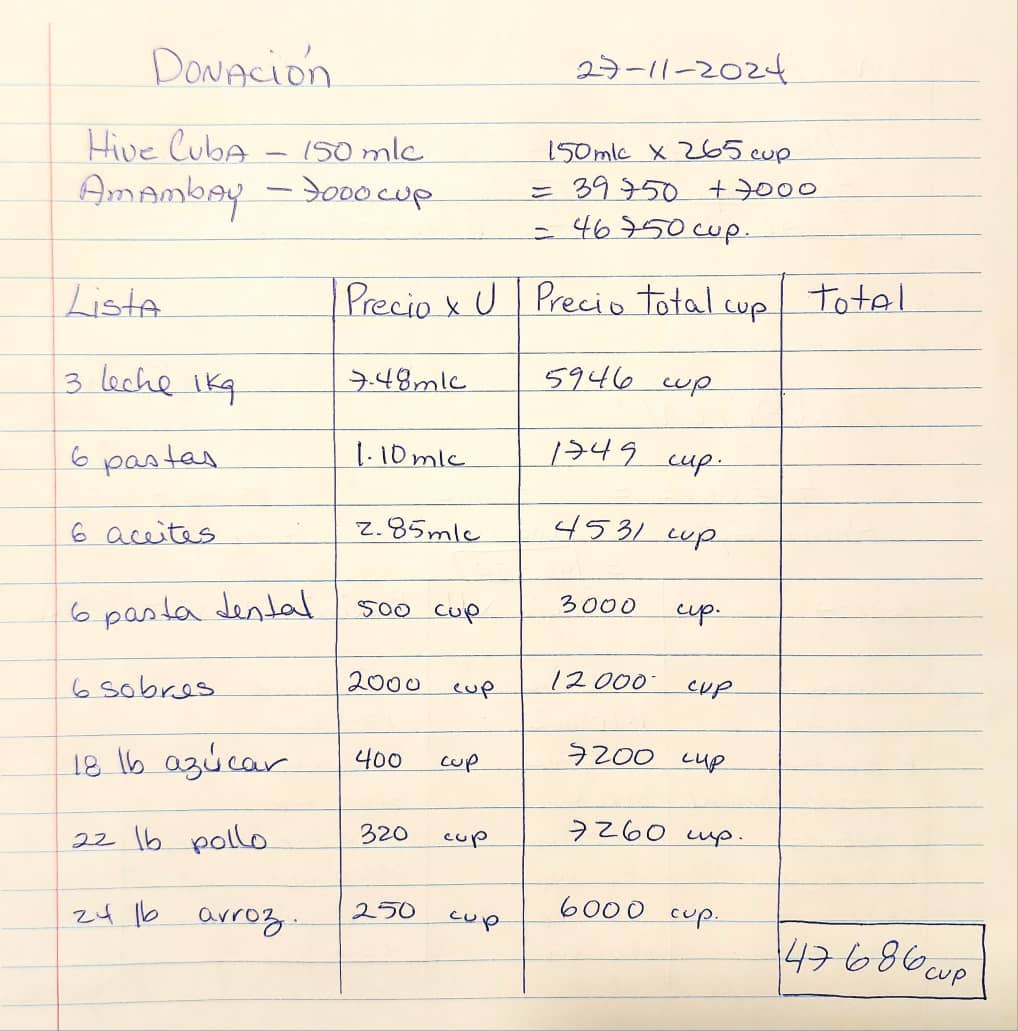 Donación 27-11-2024
Hive Cuba - 150 mlc 150mlc x 265 cup
Amambay - 7000 cup = 39750 + 7000
= 46750 cup.
Lista Precio x U Precio total cup Total
3 leche 1Kg 7.48mlc 5946 cup
6 pastas 1.10mlc 1749 cup.
6 aceites 2.85mlc 4531 cup
6 pasta dental 500 cup 3000 cup.
6 sobres 2000 cup 12000 cup
18 lb azúcar 400 cup 7200 cup
22 lb pollo 320 cup 7260 cup.
24 lb arroz. 250 cup 6000 cup.
47686 cup